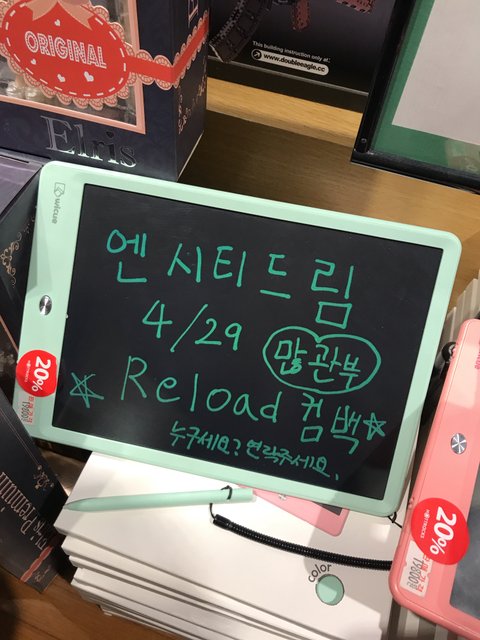 ORIGINAL
Elris
This building instruction only at:
www.doubleeagle.cc
wicue
엔시티드림
4/29 많관부
☆ Reload 컴백 ☆
누구세요? 연락주세요.
20%
20%
color